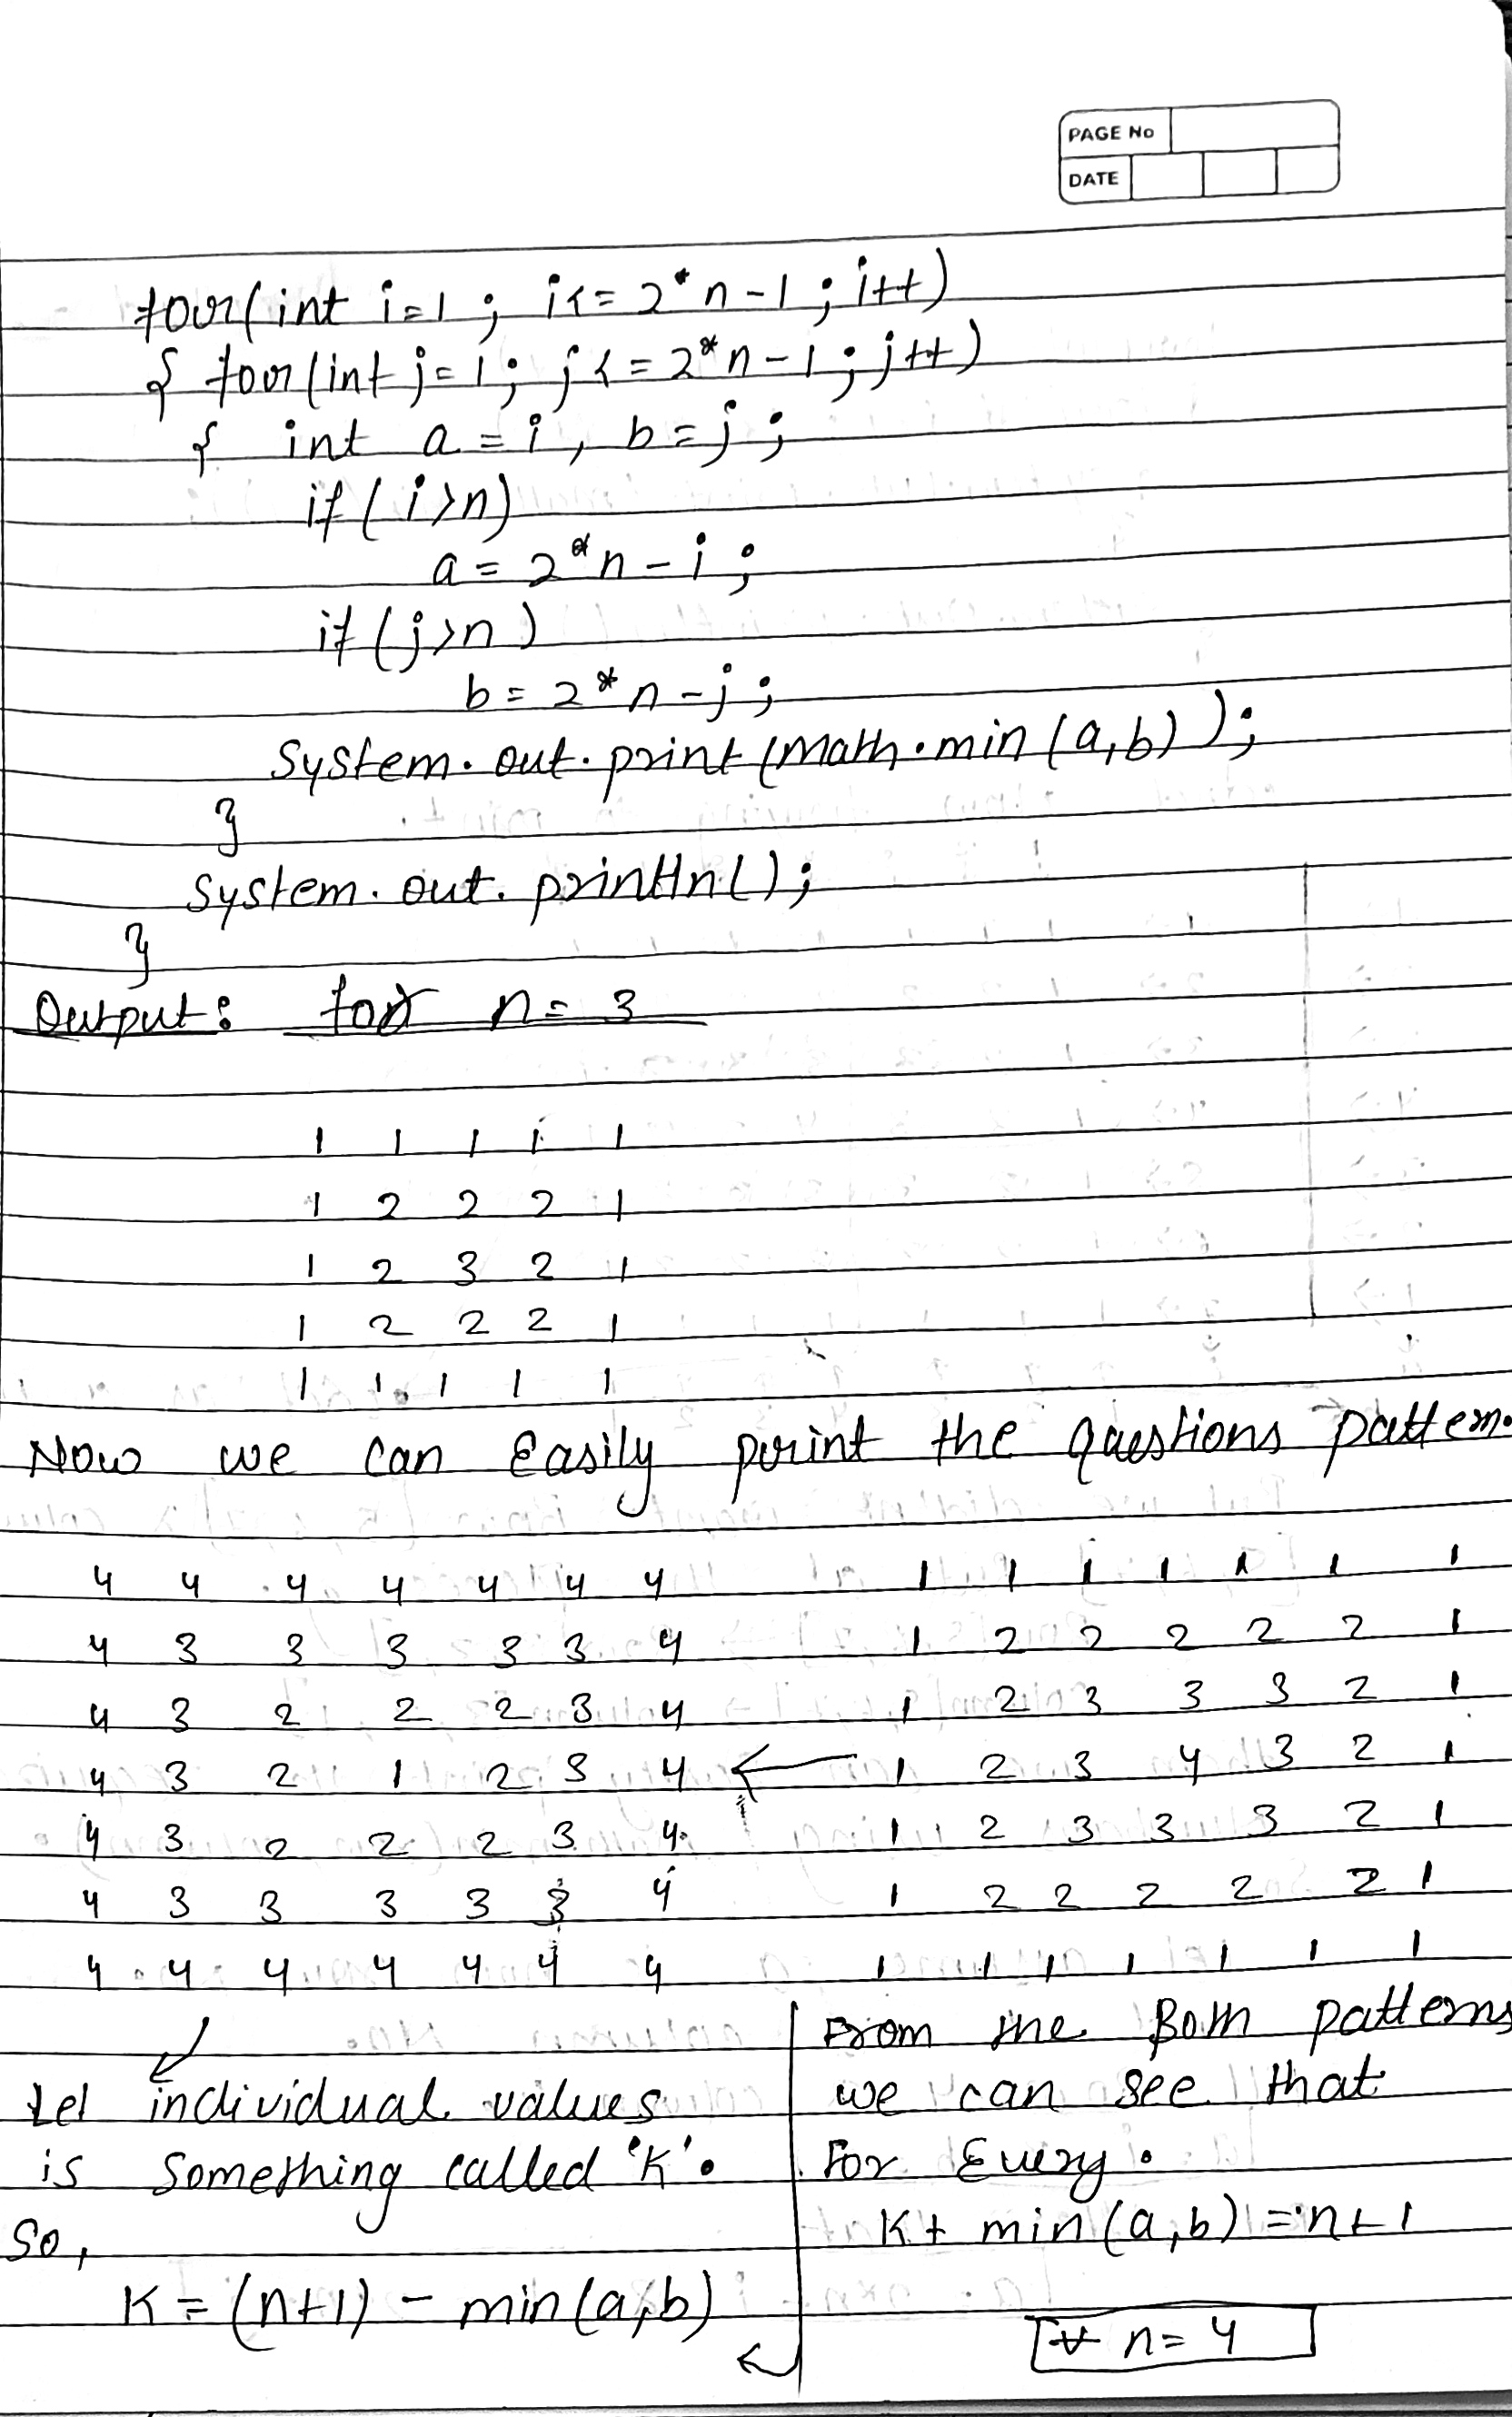 PAGE No
DATE
for(int i=1; i<=2*n-1; i++)
{ for(int j=1; j<=2*n-1; j++)
{ int a=i, b=j;
if(i>n)
a=2*n-i;
if(j>n)
b=2*n-j;
System.out.print(Math.min(a,b));
}
System.out.println();
}
Output: for n=3
1 1 1 1 1
1 2 2 2 1
1 2 3 2 1
1 2 2 2 1
1 1 1 1 1
Now we can Easily print the questions pattern.
4 4 4 4 4 4 4 1 1 1 1 1 1 1
4 3 3 3 3 3 4 1 2 2 2 2 2 1
4 3 2 2 2 3 4 1 2 3 3 3 2 1
4 3 2 1 2 3 4 ← 1 2 3 4 3 2 1
4 3 2 2 2 3 4 1 2 3 3 3 2 1
4 3 3 3 3 3 4 1 2 2 2 2 2 1
4 4 4 4 4 4 4 1 1 1 1 1 1 1
Let individual values
is something called 'K'.
So,
K = (n+1) - min(a,b)
From the Both patterns
we can see that
For Every.
K + min(a,b) = n+1
∀ n=4